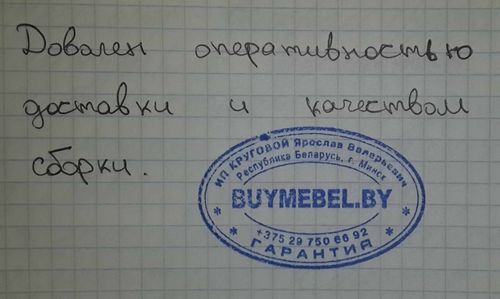 Доволен оперативностью
доставки и качеством
сборки.
ИП КРУГОВОЙ Ярослав Валерьевич
Республика Беларусь, г. Минск
BUYMEBEL.BY
+375 29 750 66 92
* * ГАРАНТИЯ * *